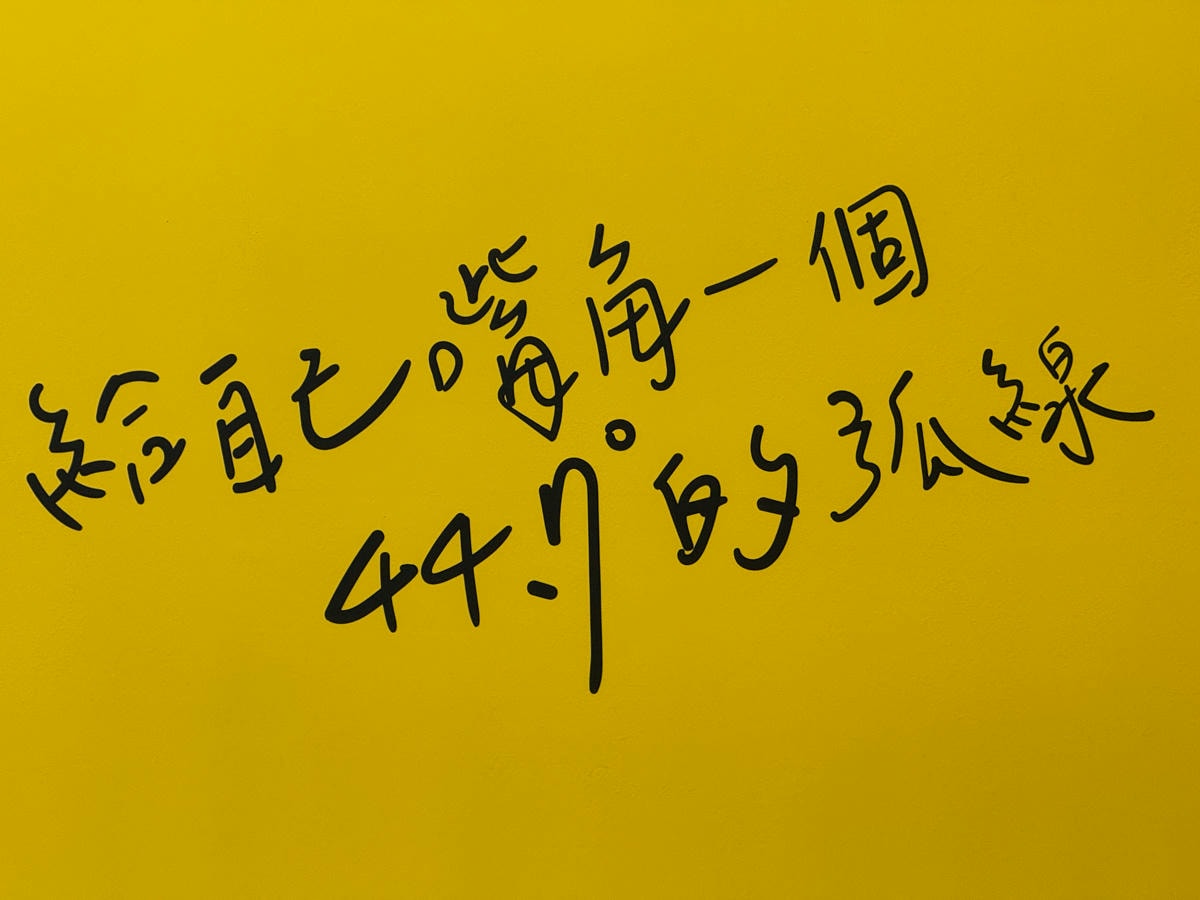 給自己嘴角一個
44.7°的弧線